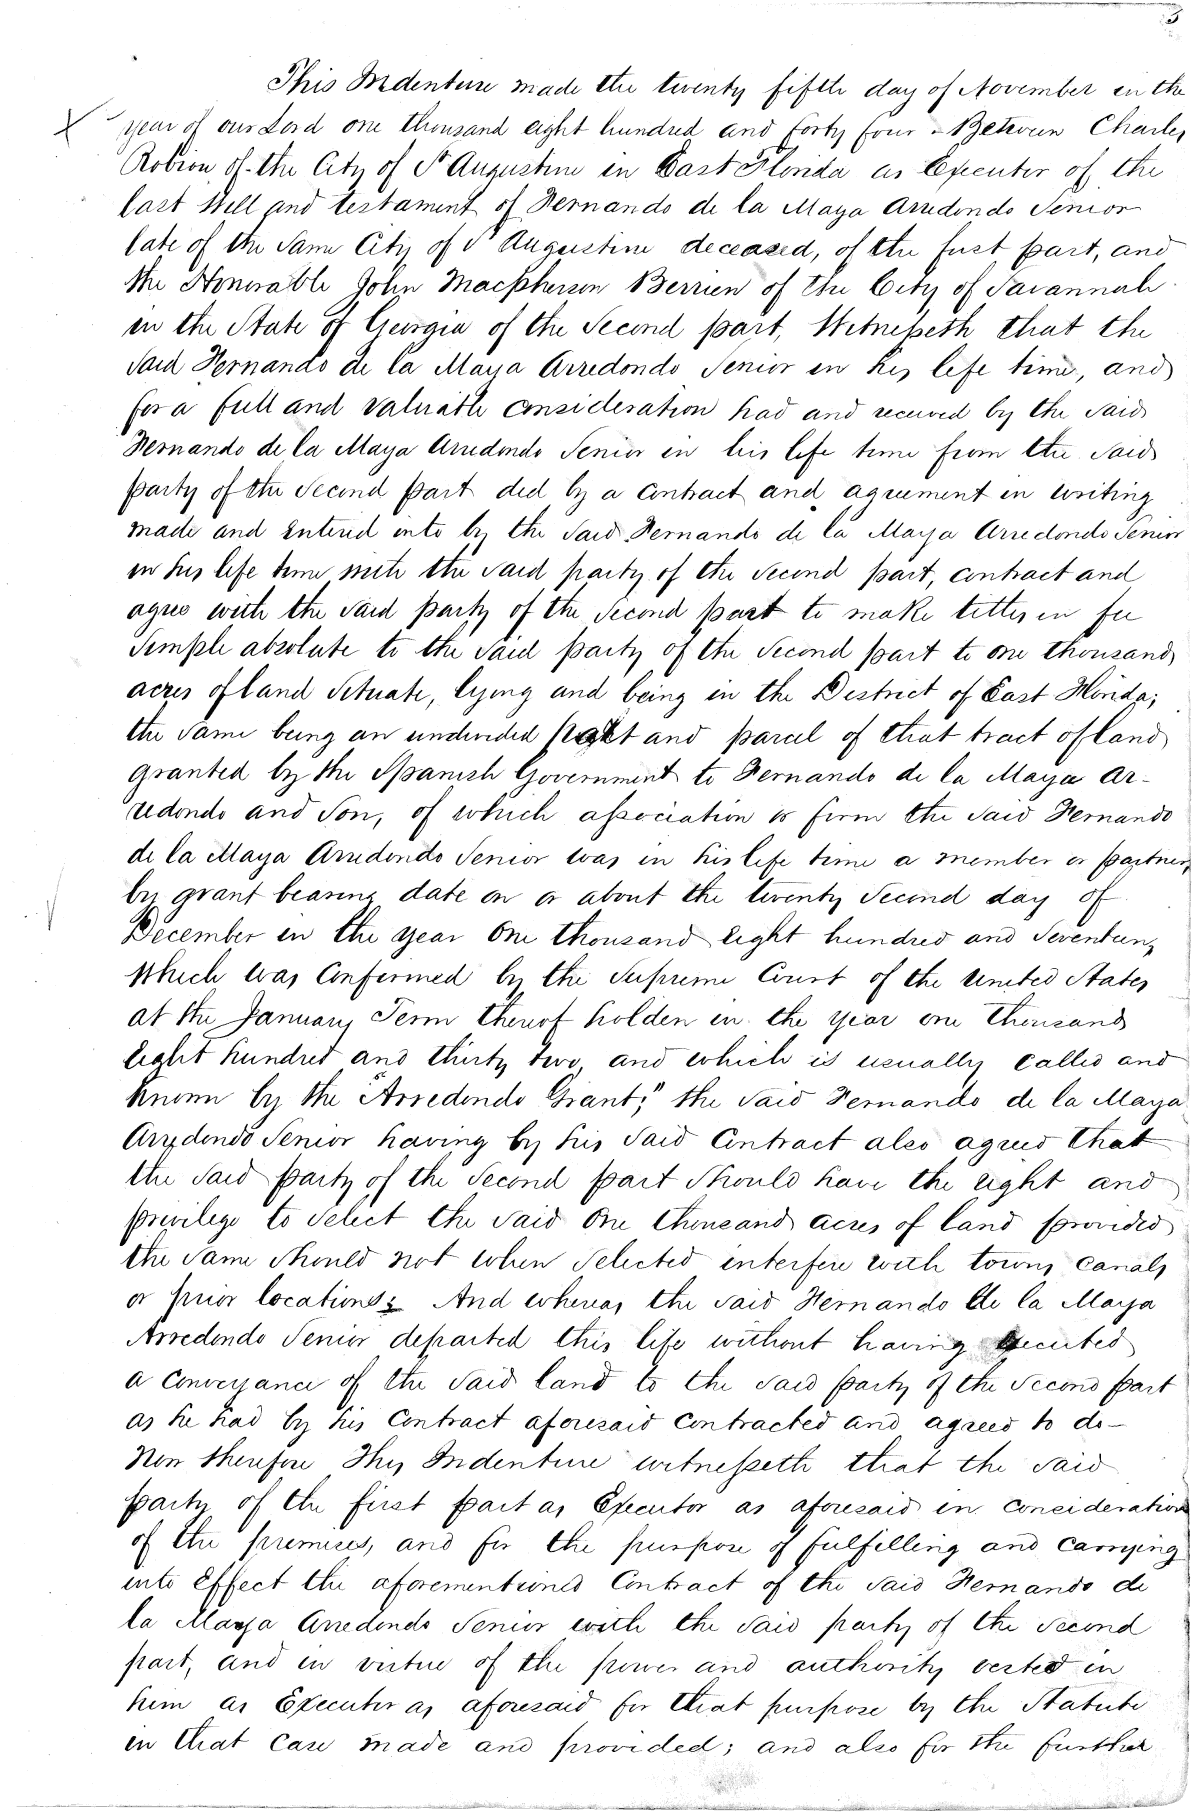 3
This Indenture made the twenty fifth day of November in the
year of our Lord one thousand eight hundred and forty four - Between Charles
Robion of the City of St Augustine in East Florida as Executor of the
last Will and testament of Fernando de la Maya Arredondo Senior
late of the Same City of St Augustine deceased, of the first part, and
the Honorable John Macpherson Berrien of the City of Savannah
in the State of Georgia of the Second part, Witnesseth that the
Said Fernando de la Maya Arredondo Senior in his life time, and
for a full and valuable consideration had and received by the Said
Fernando de la Maya Arredondo Senior in his life time from the Said
party of the Second part did by a Contract and agreement in writing
made and entered into by the Said Fernando de la Maya Arredondo Senior
in his life time with the said party of the Second part, contract and
agree with the Said party of the Second part to make titles in fee
Simple absolute to the Said party of the Second part to one thousand
acres of land Situate, lying and being in the District of East Florida;
the Same being an undivided part and parcel of that tract of land
granted by the Spanish Government to Fernando de la Maya Ar-
redondo and Son, of which association or firm the Said Fernando
de la Maya Arredondo Senior was in his life time a member or partner,
by grant bearing date on or about the twenty Second day of
December in the year One thousand eight hundred and Seventeen,
which was Confirmed by the Supreme Court of the United States
at the January Term thereof holden in the year one thousand
eight hundred and thirty two, and which is usually called and
known by the "Arredondo Grant;" the Said Fernando de la Maya
Arredondo Senior having by his Said Contract also agreed that
the Said party of the Second part Should have the right and
privilege to Select the Said One thousand acres of land provided
the Same Should not when Selected interfere with towns, canals,
or prior locations; And whereas the Said Fernando de la Maya
Arredondo Senior departed this life without having executed
a conveyance of the Said land to the Said party of the Second part
as he had by his Contract aforesaid contracted and agreed to do-
Now therefore This Indenture witnesseth that the Said
party of the first part as Executor as aforesaid in consideration
of the premises, and for the purpose of fulfilling and carrying
into Effect the aforementioned Contract of the Said Fernando de
la Maya Arredondo Senior with the Said party of the Second
part, and in virtue of the power and authority vested in
him as Executor as aforesaid for that purpose by the Statute
in that Case made and provided; and also for the further